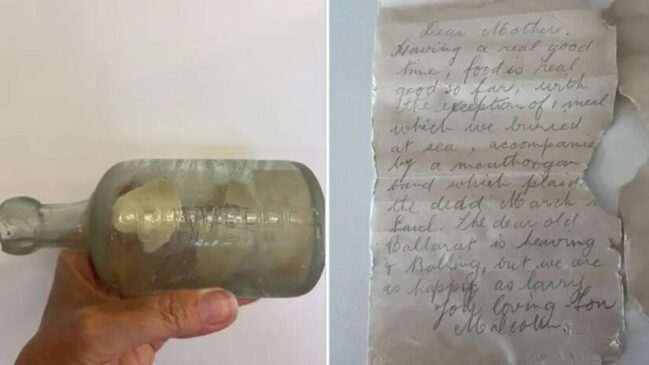 Dear Mother.
Having a real good
time, food is real
good so far, with
the exception of 1 meal
which we buried
at sea, accompanie
by a mouthorgan
band which plaid
the dedd March
Saul. The dear old
Ballarat is heaving
& Balling, but we are
as happy as larry
Your loving Son
Malcolm.